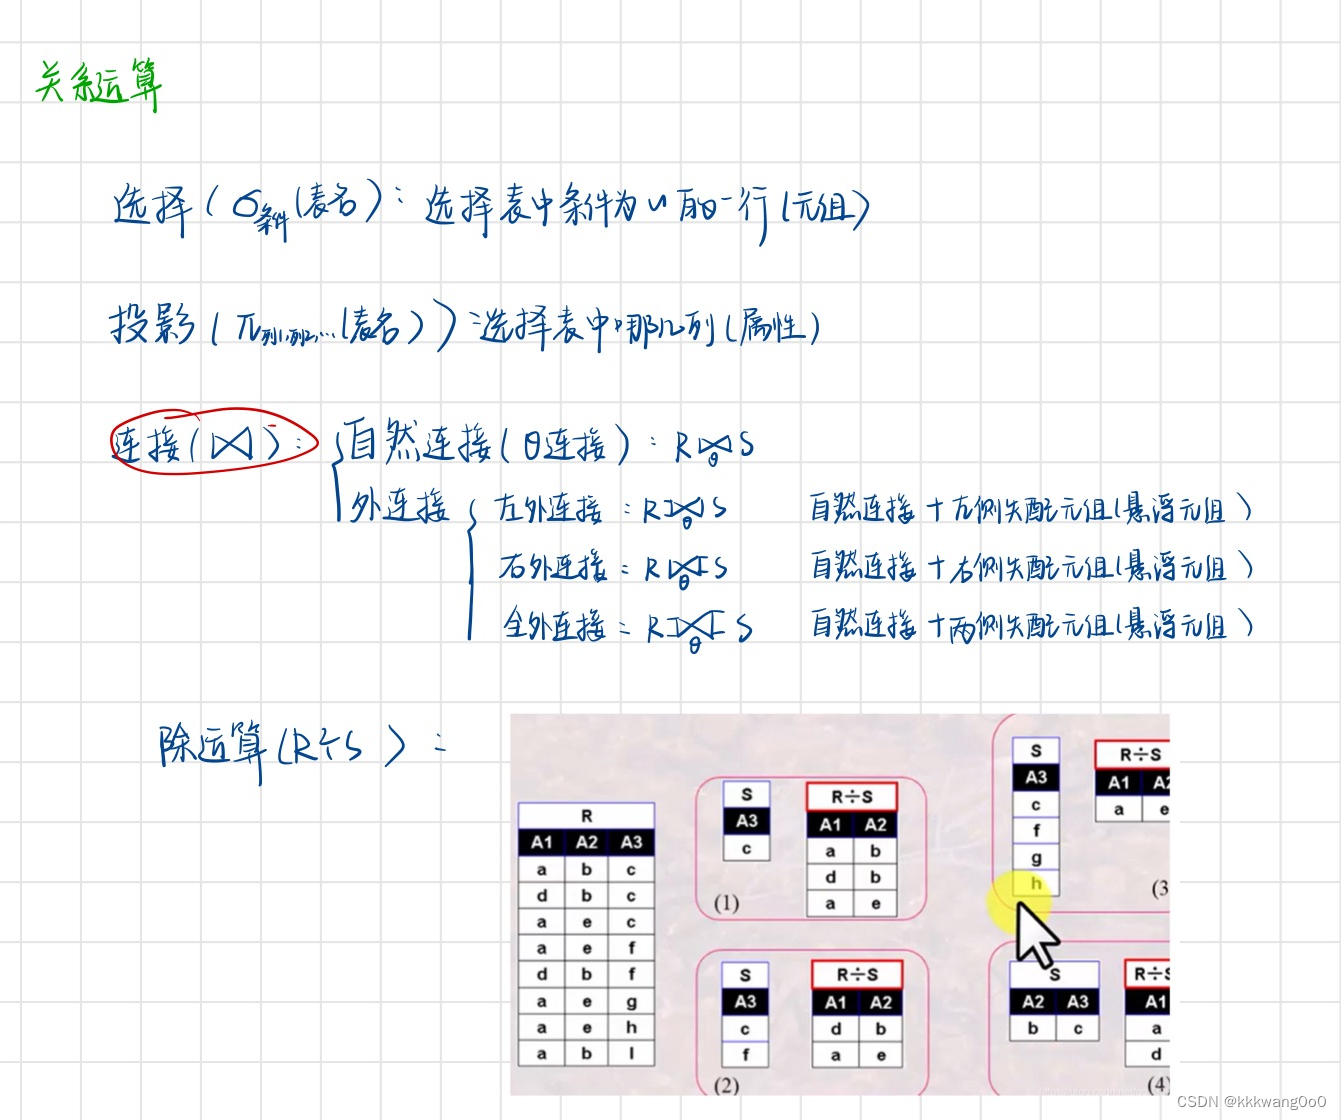 关系运算
选择(σ条件(表名)):选择表中条件为\~的一行(元组)
投影(π列1,列2,...(表名)):选择表中哪几列(属性)
连接(⋈):
自然连接(θ连接):R⋈θS
外连接
左外连接:R⟕θS 自然连接+左侧失配元组(悬浮元组)
右外连接:R⟖θS 自然连接+右侧失配元组(悬浮元组)
全外连接:R⟗θS 自然连接+两侧失配元组(悬浮元组)
除运算(R÷S):
R
A1 A2 A3
a b c
d b c
a e c
a e f
d b f
a e g
a e h
a b l
S
A3
c
R÷S
A1 A2
a b
d b
a e
(1)
S
A3
c
f
R÷S
A1 A2
d b
a e
(2)
S
A3
c
f
g
h
R÷S
A1 A2
a e
(3
S
A2 A3
b c
R÷S
A1
a
d
(4)
CSDN @kkkwang0o0